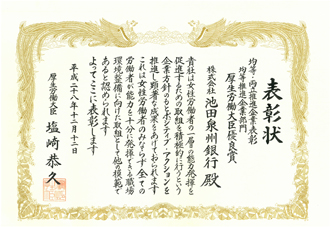 表彰状
均等・両立推進企業表彰
均等推進企業部門
厚生労働大臣優良賞
株式会社 池田泉州銀行 殿
貴社は女性労働者の一層の能力発揮を
促進するための取組を積極的に行うという
企業方針のもとポジティブ・アクションを
推進し顕著な成果をあげておられます
これは女性労働者のみならず全ての
労働者が能力を十分に発揮できる職場
環境整備に向けた取組として他の模範で
あると認められます
よってここに表彰します
平成二十八年十月十三日
厚生労働大臣 塩崎恭久